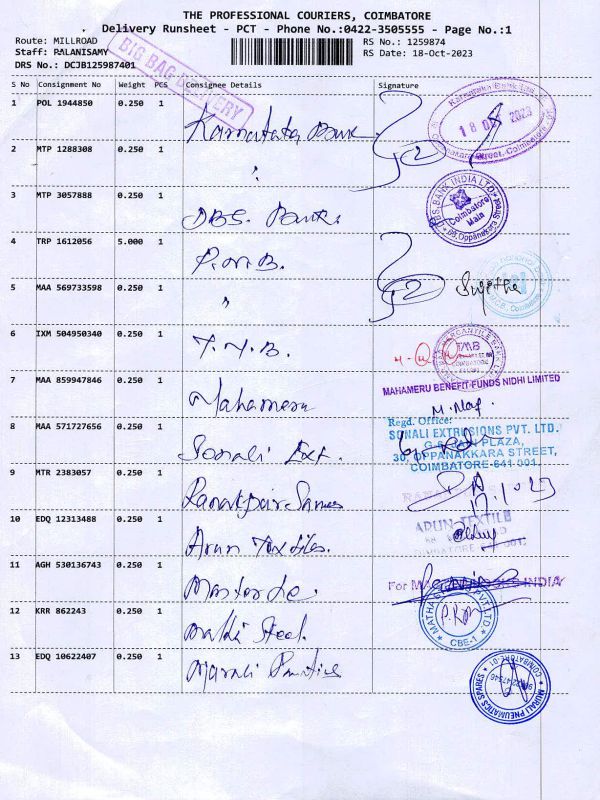 THE PROFESSIONAL COURIERS, COIMBATORE
Delivery Runsheet - PCT - Phone No.:0422-3505555 - Page No.:1
Route: MILLROAD
Staff: PALANISAMY
DRS No.: DCJB125987401
RS No.: 1259874
RS Date: 18-Oct-2023
BIG BAG DELIVERY
S No Consignment No Weight PCS Consignee Details Signature
1 POL 1944850 0.250 1 Karnataka Bank
18 2023
2 MTP 1288308 0.250 1 "
2
3 MTP 3057888 0.250 1 DBS. Bank.
DBS BANK INDIA LTD
Coimbatore
Main
Oppanakara Street
4 TRP 1612056 5.000 1 P.N.B.
5 MAA 569733598 0.250 1 "
2 Sujitha
6 IXM 504950340 0.250 1 T.M.B.
TMB
7 MAA 859947846 0.250 1 Mahameru
MAHAMERU BENEFIT FUNDS NIDHI LIMITED
8 MAA 571727656 0.250 1 Sonali Ext.
Regd. Office:
SONALI EXTRUSIONS PVT. LTD.
PLAZA,
30, OPPANAKKARA STREET,
COIMBATORE-641 001.
9 MTR 2383057 0.250 1
10 EDQ 12313488 0.250 1 Arun Textiles.
ARUN TEXTILE
11 AGH 530136743 0.250 1
For INDIA
12 KRR 862243 0.250 1 Steel.
PVT LTD
CBE-1
13 EDQ 10622407 0.250 1
MURALI PNEUMATICS SPARES
COIMBATORE-01